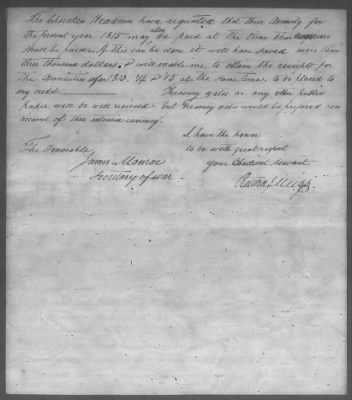 The Cherokee Headmen have requested that their Annuity for
the present year 1815 may also be paid at the time that
shall be paid. If this can be done it will have saved more than
three thousand dollars. & will enable me to obtain the receipt for
the Annuities of 1813. 14 & 15 at the same time to be placed to
my credit. Treasury notes or any other public
paper will be well received. but Treasury notes would be preferred on
account of their extensive currency.
I have the honor
The Honorable
to be with great respect
James Monroe
your Obedient servant.
Secretary of war.
Return J Meigs